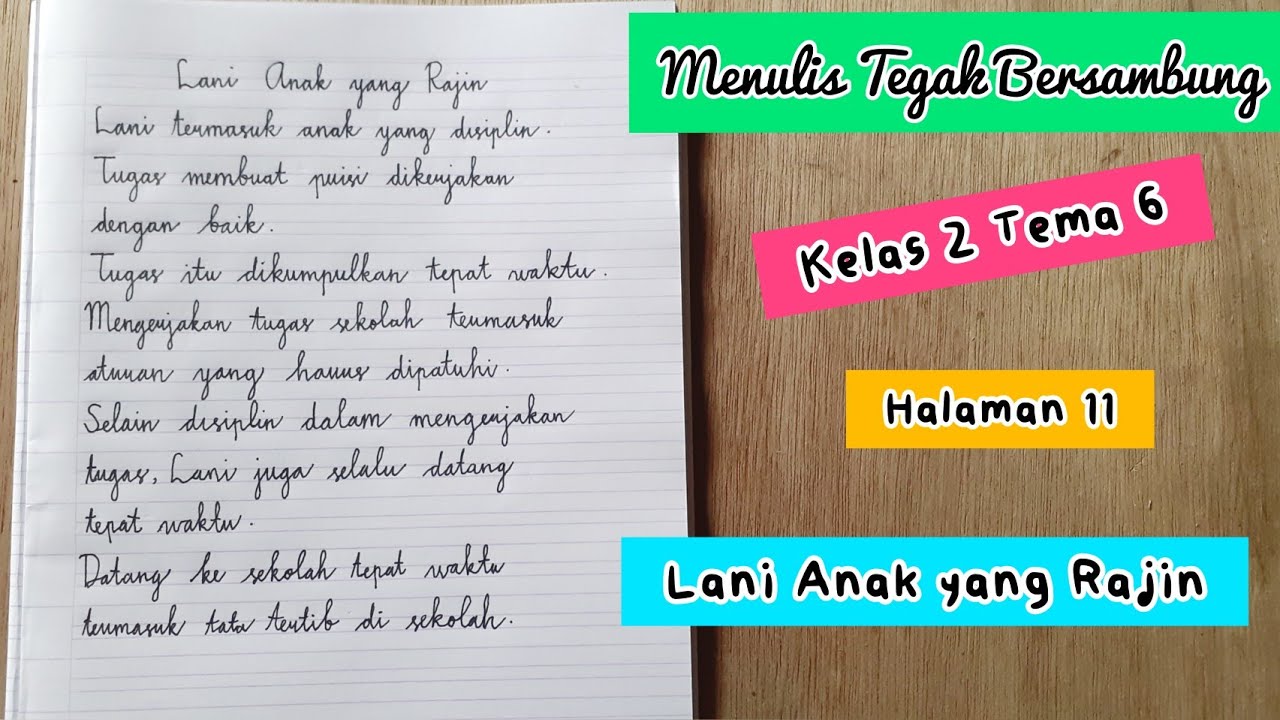 Lani Anak yang Rajin
Lani termasuk anak yang disiplin.
Tugas membuat puisi dikerjakan
dengan baik.
Tugas itu dikumpulkan tepat waktu.
Mengerjakan tugas sekolah termasuk
aturan yang harus dipatuhi.
Selain disiplin dalam mengerjakan
tugas, Lani juga selalu datang
tepat waktu.
Datang ke sekolah tepat waktu
termasuk tata tertib di sekolah.
Menulis Tegak Bersambung
Kelas 2 Tema 6
Halaman 11
Lani Anak yang Rajin